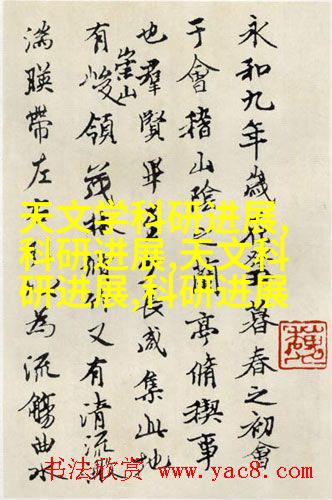 永和九年歲在癸暮春之初會
于會稽山陰之蘭亭脩稧事
也羣賢畢至少長咸集此地
有崇山峻領茂林脩竹又有清流激
湍暎帶左右為流觴曲水
天文学科研进展,
科研进展,天文科
研进展,科研进展
书法欣赏 www.yac8.com